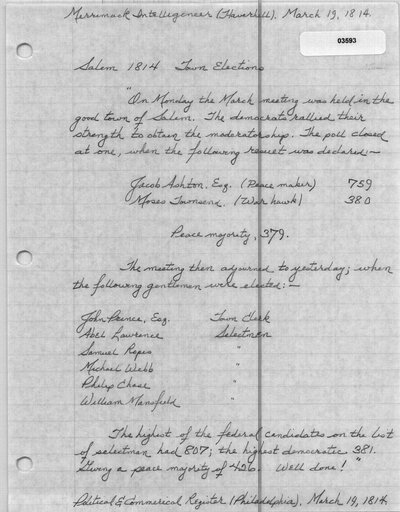 Merrimack Intelligencer (Haverhill), March 19, 1814.
03593
Salem 1814 Town Elections
"On Monday the March meeting was held in the
good town of Salem. The democrats rallied their
strength to obtain the moderatorship. The poll closed
at one, when the following result was declared:—
Jacob Ashton, Esq. (Peace maker) 759
Moses Townsend, (War hawk) 380
Peace majority, 379.
The meeting then adjourned to yesterday; when
the following gentlemen were elected:—
John Prince, Esq. Town Clerk
Abel Lawrence Selectmen
Samuel Ropes "
Michael Webb "
Philip Chase "
William Mansfield "
The highest of the federal candidates on the list
of selectmen had 807; the highest democratic 381.
Giving a peace majority of 426. Well done!"
Political & Commerical Register (Philadelphia), March 19, 1814